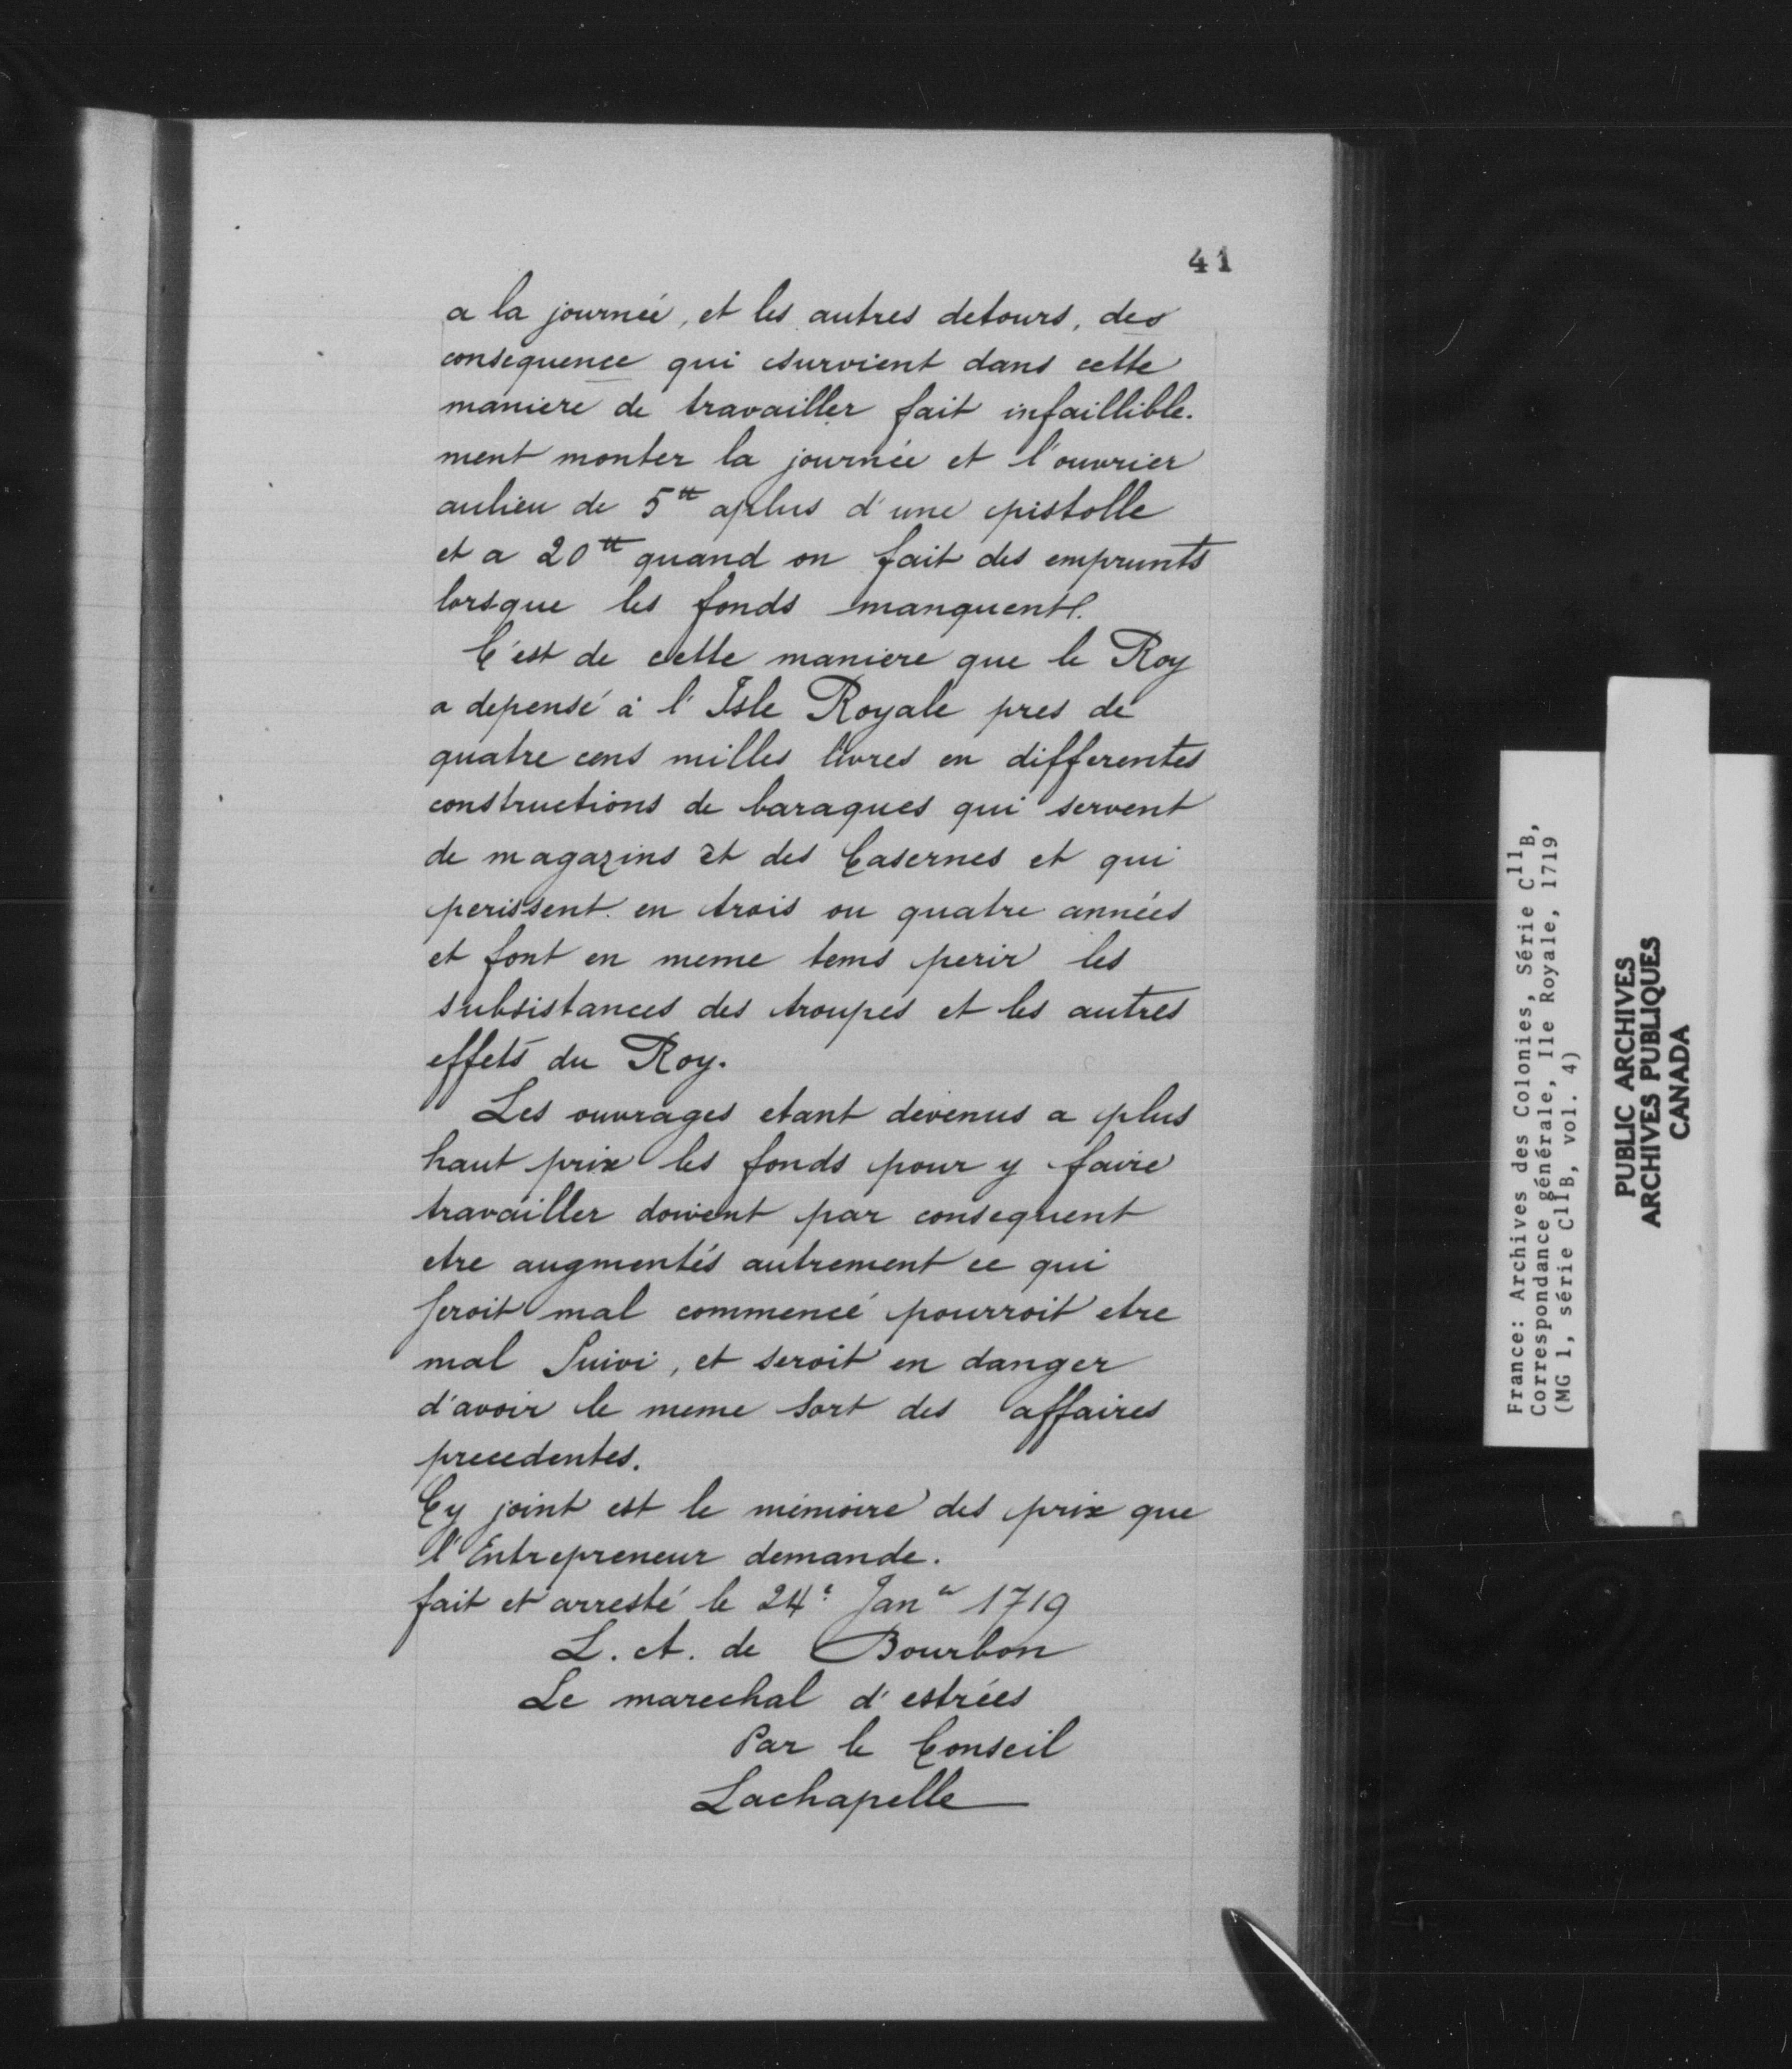 41
a la journée, et les autres detours, des
consequence qui survient dans cette
maniere de travailler fait infaillible.
ment monter la journée et l'ouvrier
aulieu de 5tt aplus d'une pistolle
et a 20tt quand on fait des emprunts
lorsque les fonds manquent.
C'est de cette maniere que le Roy
a depensé à l'Isle Royale pres de
quatre cens milles livres en differentes
constructions de baraques qui servent
de magazins et des Casernes et qui
perissent en trois ou quatre années
et font en meme tems perir les
subsistances des troupes et les autres
effets du Roy.
Les ouvrages etant devenus a plus
haut prix les fonds pour y faire
travailler doivent par consequent
etre augmentés autrement ce qui
seroit mal commencé pourroit etre
mal Suivi, et seroit en danger
d'avoir le meme sort des affaires
precedentes.
Cy joint est le mémoire des prix que
l'Entrepreneur demande.
fait et arresté le 24e Janer 1719
L. A. de Bourbon
Le marechal d'estrées
Par le Conseil
Lachapelle
France: Archives des Colonies, Série C11B,
Correspondance générale, Ile Royale, 1719
(MG 1, série C11B, vol. 4)
PUBLIC ARCHIVES
ARCHIVES PUBLIQUES
CANADA